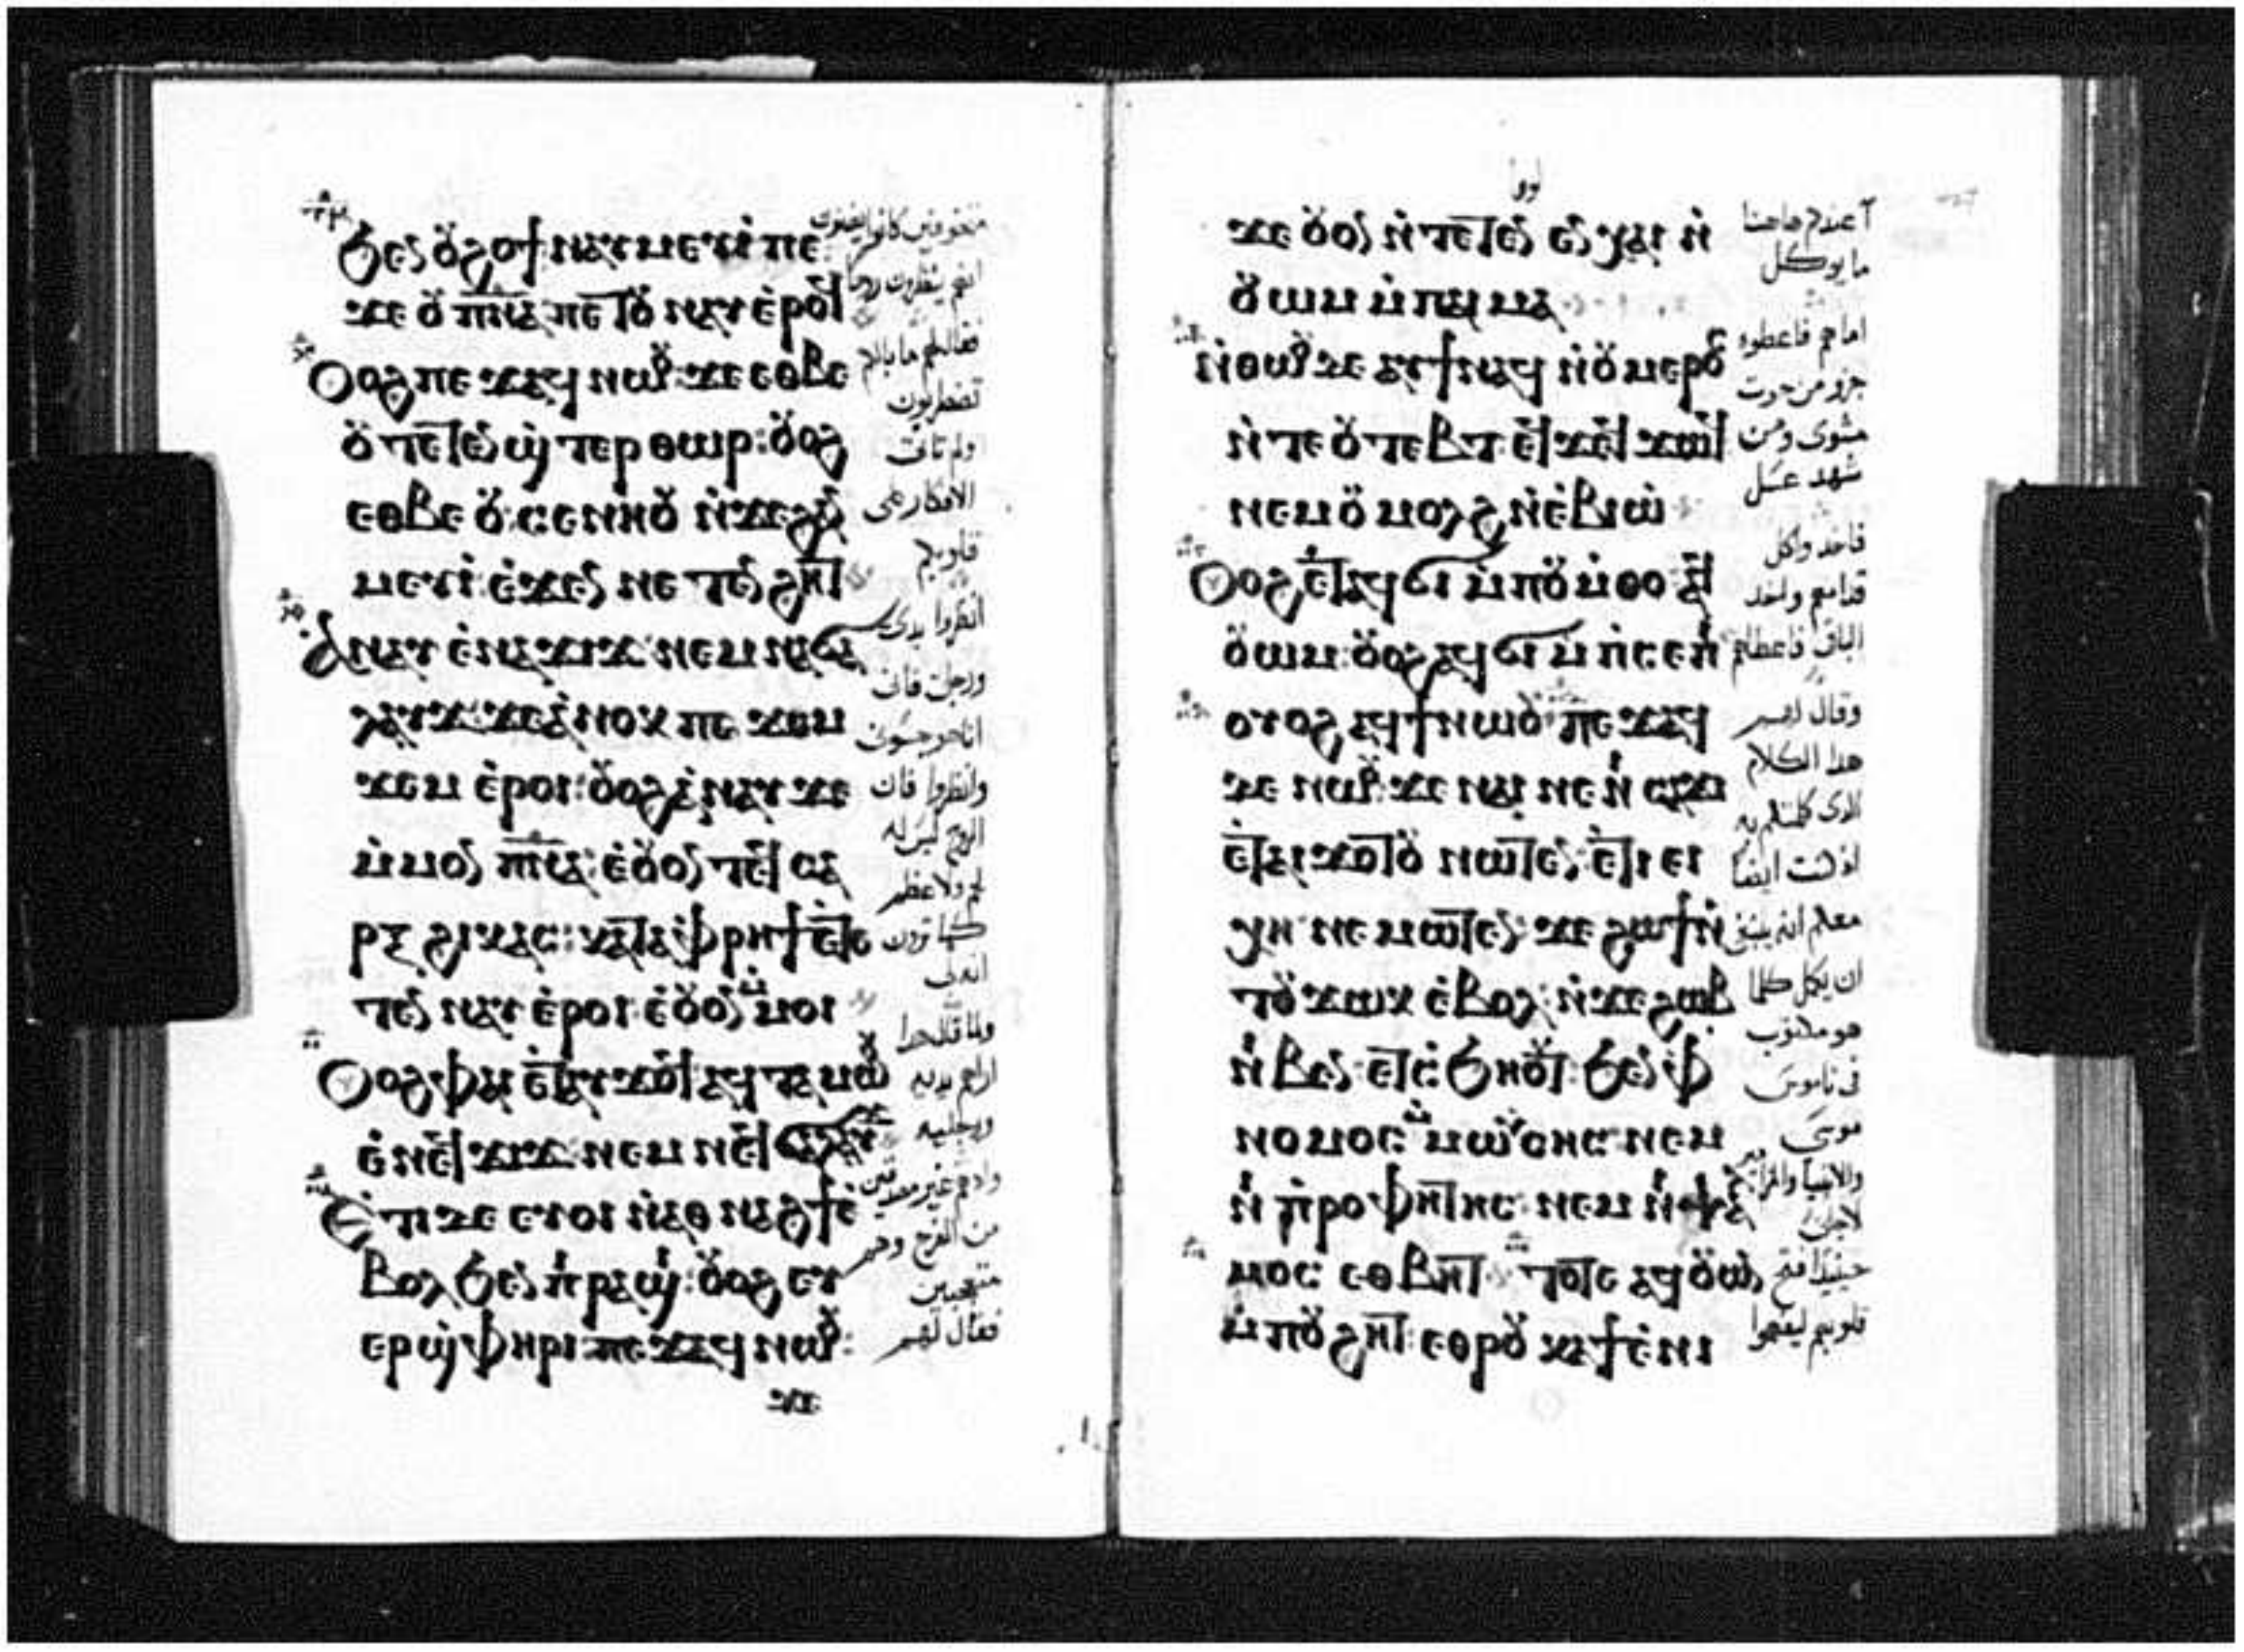 ϧⲉⲛ ⲟⲩϩⲟϯ ⲛⲁⲩⲙⲉⲩⲓ̀ ⲡⲉ:
ϫⲉ ⲟⲩⲡ̅ⲛ̅ⲁ̅ ⲡⲉⲧⲟⲩⲛⲁⲩ ⲉ̀ⲣⲟϥ
Ⲟⲩⲟϩ ⲡⲉϫⲁϥ ⲛⲱⲟⲩ: ϫⲉ ⲉⲑⲃⲉ
ⲟⲩ ⲧⲉⲧⲉⲛϣ̀ⲧⲉⲣⲑⲱⲣ: ⲟⲩⲟϩ
ⲉⲑⲃⲉ ⲟⲩ ⲥⲉⲛⲏⲟⲩ ⲛ̀ϫⲉϩⲁⲛ
ⲙⲉⲩⲓ̀ ⲉ̀ϫⲉⲛ ⲛⲉⲧⲉⲛϩⲏⲧ
Ⲁⲛⲁⲩ ⲉ̀ⲛⲁϫⲓϫ ⲛⲉⲙ ⲛⲁϭⲁ
ⲗⲁⲩϫ ϫⲉ ⲁ̀ⲛⲟⲕ ⲡⲉ ϫⲟⲙ
ϫⲉⲙ ⲉ̀ⲣⲟⲓ: ⲟⲩⲟϩ ⲁ̀ⲛⲁⲩ ϫⲉ
ⲙ̀ⲙⲟⲛ ⲡ̅ⲛ̅ⲁ̅: ⲉ̀ⲟⲩⲟⲛⲧⲉϥ ⲥⲁ
ⲣⲝ ϩⲓ ⲕⲁⲥ: ⲕⲁⲧⲁ ⲫ̀ⲣⲏϯ ⲉ̀ⲧⲉ
ⲧⲉⲛ ⲛⲁⲩ ⲉ̀ⲣⲟⲓ ⲉ̀ⲟⲩⲟⲛ ⲙ̀ⲙⲟⲓ
Ⲟⲩⲟϩ ⲫⲁⲓ ⲉ̀ⲧⲁϥϫⲟϥ ⲁϥⲧⲁⲙⲱⲟⲩ
ⲉ̀ⲛⲉϥϫⲓϫ ⲛⲉⲙ ⲛⲉϥϭⲁⲗⲁⲩϫ
Ⲉ̀ⲧⲓ ⲇⲉ ⲉⲩⲟⲓ ⲛ̀ⲁⲑⲛⲁϩϯ ⲉ̀
ⲃⲟⲗ ϧⲉⲛ ⲡ̀ⲣⲁϣⲓ: ⲟⲩⲟϩ ⲉⲩ
ⲉⲣϣ̀ⲫⲏⲣⲓ ⲡⲉϫⲁϥ ⲛⲱⲟⲩ:
ϫⲉ
انتم ينظرون روحا
فقال لهم ما بالكم
تضطربون
ولم تات
الافكار على
قلوبكم
انظروا يدى
ورجلى فانى
انا هو جسون
وانظروا فان
الروح ليس له
لحم ولا عظم
كما ترون
انه لى
ولما قال هدا
اراهم يديه
ورجليه
واد هم غير مصدقين
من الفرح وهم
متعجبين
فقال لهم
لوقا
ϫⲉ ⲟⲩⲟⲛ ⲛ̀ⲧⲉⲧⲉⲛ ⲉⲛⲭⲁⲓ ⲛ̀
ⲟⲩⲱⲙ ⲙ̀ⲡⲁⲓⲙⲁ
ⲛ̀ⲑⲱⲟⲩ ⲇⲉ ⲁⲩϯ ⲛⲁϥ ⲛ̀ⲟⲩⲙⲉⲣⲟⲥ
ⲛ̀ⲧⲉ ⲟⲩⲧⲉⲃⲧ ⲉϥϫⲉϥϫⲱϥ
ⲛⲉⲙ ⲟⲩⲙⲟⲗϩ ⲛ̀ⲉ̀ⲃⲓⲱ̀
Ⲟⲩⲟϩ ⲉ̀ⲧⲁϥϭⲓ ⲙ̀ⲡⲟⲩⲙ̀ⲑⲟ ⲁϥ
ⲟⲩⲱⲙ: ⲟⲩⲟϩ ⲁϥϭⲓ ⲙ̀ⲡ̀ⲥⲉⲡⲓ
ⲟⲩⲟϩ ⲁϥϯ ⲛⲱⲟⲩ ⲡⲉϫⲁϥ
ⲇⲉ ⲛⲱⲟⲩ: ϫⲉ ⲛⲁⲓ ⲛⲉ ⲛⲓⲥⲁϫⲓ
ⲉ̀ⲧⲁⲓϫⲟⲧⲟⲩ ⲛⲱⲧⲉⲛ, ⲉ̀ⲧⲓ ⲉⲓ
ⲭⲏ ⲛⲉⲙⲱⲧⲉⲛ: ϫⲉ ϩⲱϯ ⲛ̀
ⲧⲟⲩϫⲱⲕ ⲉ̀ⲃⲟⲗ ⲛ̀ϫⲉ ϩⲱⲃ
ⲛⲓⲃⲉⲛ ⲉⲧⲥ̀ϧⲏⲟⲩⲧ: ϧⲉⲛ ⲫ̀
ⲛⲟⲙⲟⲥ ⲙ̀ⲙⲱⲩ̀ⲥⲏⲥ ⲛⲉⲙ
ⲛⲓⲡ̀ⲣⲟⲫⲏⲧⲏⲥ ⲛⲉⲙ ⲛⲓⲯⲁⲗ
ⲙⲟⲥ ⲉⲑⲃⲏⲧ ⲧⲟⲧⲉ ⲁϥⲟⲩⲱⲛ
ⲙ̀ⲡⲟⲩϩⲏⲧ: ⲉⲑⲣⲟⲩⲕⲁϯ ⲉ̀ⲛⲓ
اعندكم هاهنا
ما يوكل
اما هم فاعطوه
جزو من حوت
مشوى ومن
شهد عسل
فاخد واكل
قدامهم واخد
الباقى فاعطاهم
وقال لهم
هدا الكلام
الدى كلمتكم به
اد كنت ايضا
معكم انه ينبغى
ان يكمل كلما
هو مكتوب
فى ناموس
موسى
والانبيا والمزامير
لاجلى
حينيدا فتح
قلوبهم ليفهموا